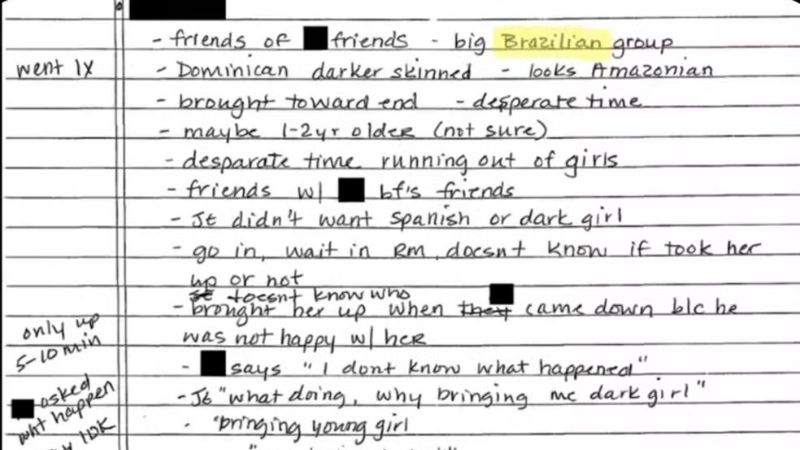 - friends of friends - big Brazilian group
went 1x
- Dominican darker skinned - looks Amazonian
- brought toward end - desperate time
- maybe 1-2yr older (not sure)
- desparate time running out of girls
- friends w/ bf's friends
- JE didn't want Spanish or dark girl
- go in, wait in RM, doesnt know if took her
up or not
doesnt know who
- brought her up when they came down b/c he
was not happy w/ her
only up
5-10 min
- says "I dont know what happened"
asked
what happen
- JE "what doing, why bringing me dark girl"
- "bringing young girl
IDK